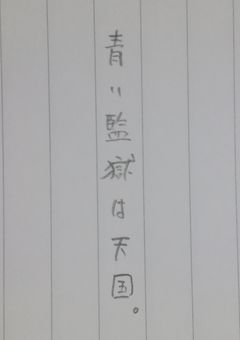 青い監獄は天国。